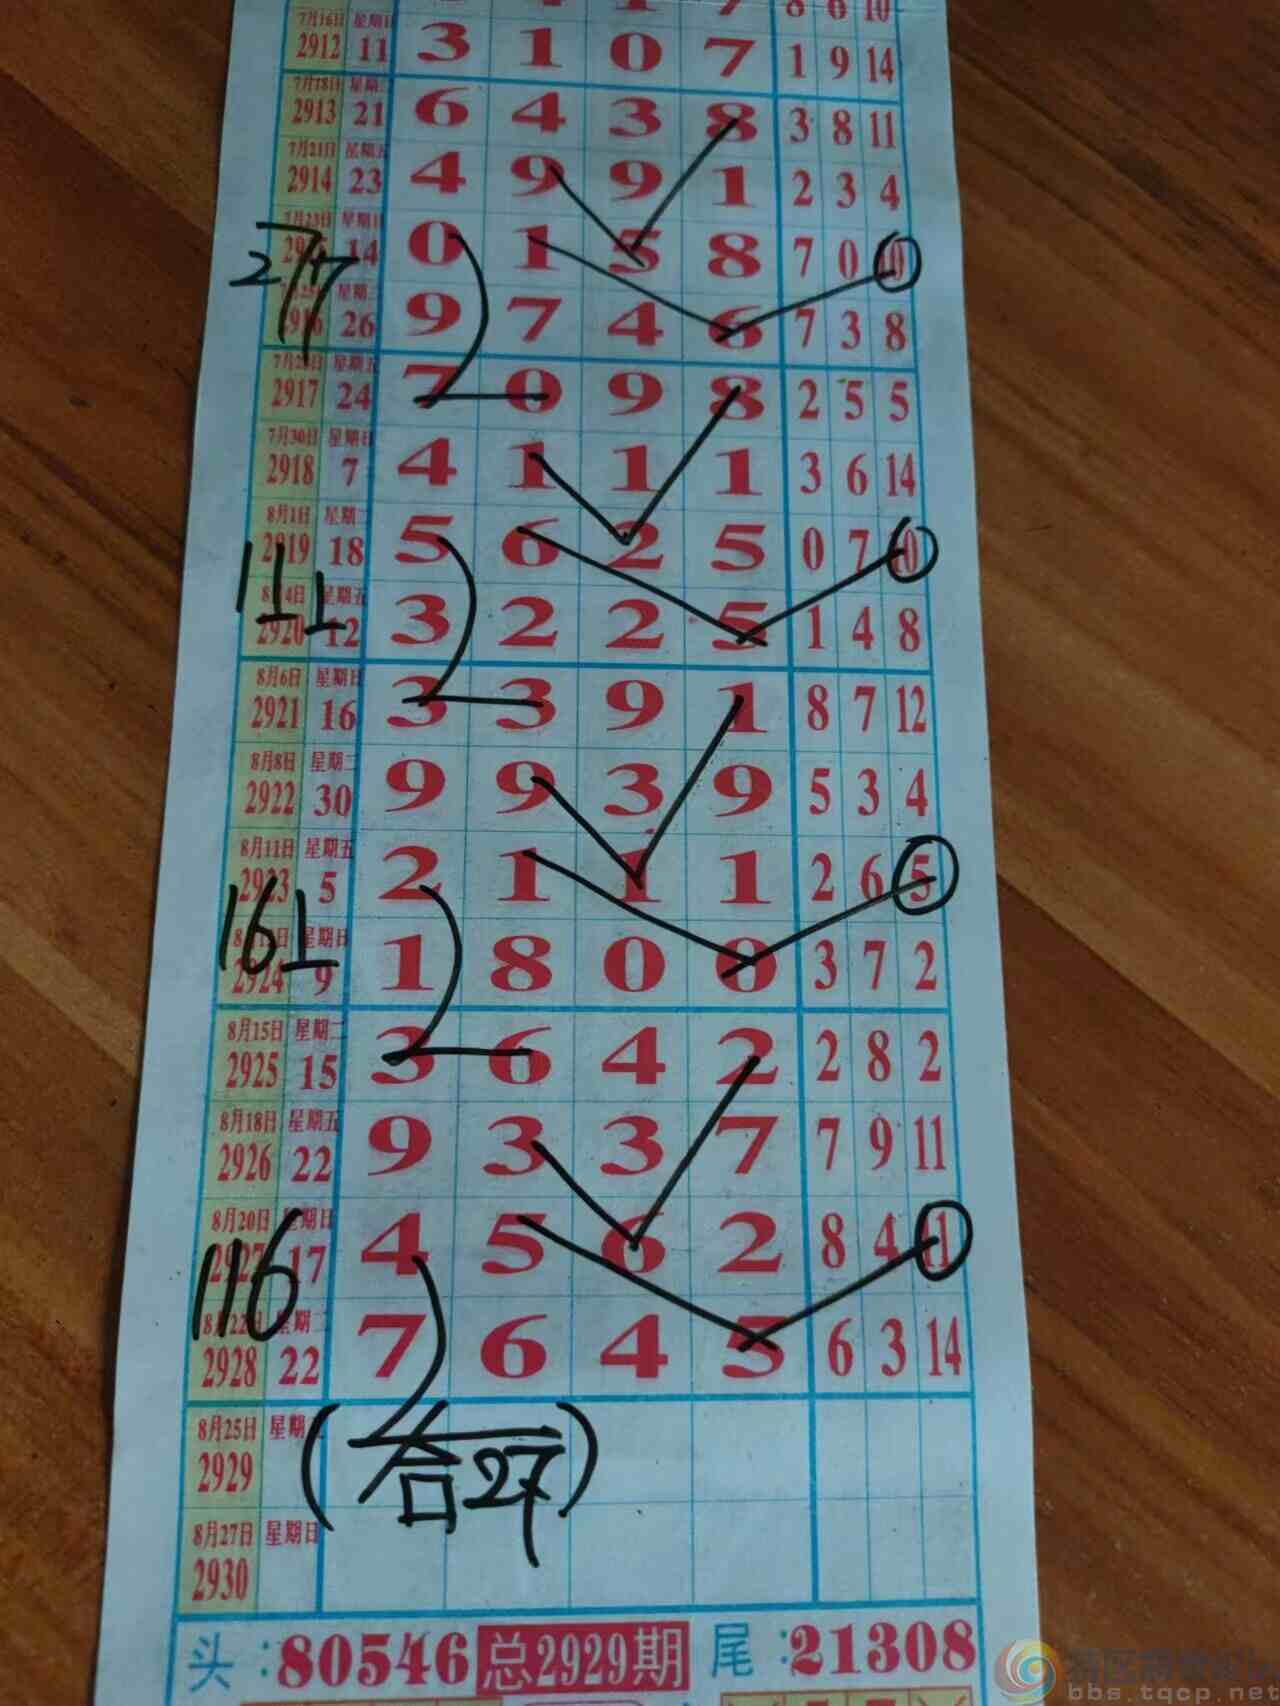 7 8 6 10
7月16日 星期日
2912 11 3 1 0 7 1 9 14
7月18日 星期二
2913 21 6 4 3 8 3 8 11
7月21日 星期五
2914 23 4 9 9 1 2 3 4
7月23日 星期日
14 0 1 5 8 7 0 10
277
星期二
2916 26 9 7 4 6 7 3 8
星期五
2917 24 7 0 9 8 2 5 5
7月30日 星期日
2918 7 4 1 1 1 3 6 14
8月1日 星期二
2919 18 5 6 2 5 0 7 10
111
8月4日 星期五
2920 12 3 2 2 5 1 4 8
8月6日 星期日
2921 16 3 3 9 1 8 7 12
8月8日 星期二
2922 30 9 9 3 9 5 3 4
8月11日 星期五
2923 5 2 1 1 1 2 6 5
161
星期日
2924 9 1 8 0 0 3 7 2
8月15日 星期二
2925 15 3 6 4 2 2 8 2
8月18日 星期五
2926 22 9 3 3 7 7 9 11
8月20日 星期日
2927 17 4 5 6 2 8 4 11
116
8月22日 星期二
2928 22 7 6 4 5 6 3 14
8月25日 星期
2929
(合27)
8月27日 星期日
2930
头:80546 总2929期 尾:21308
bbs.tqcp.net